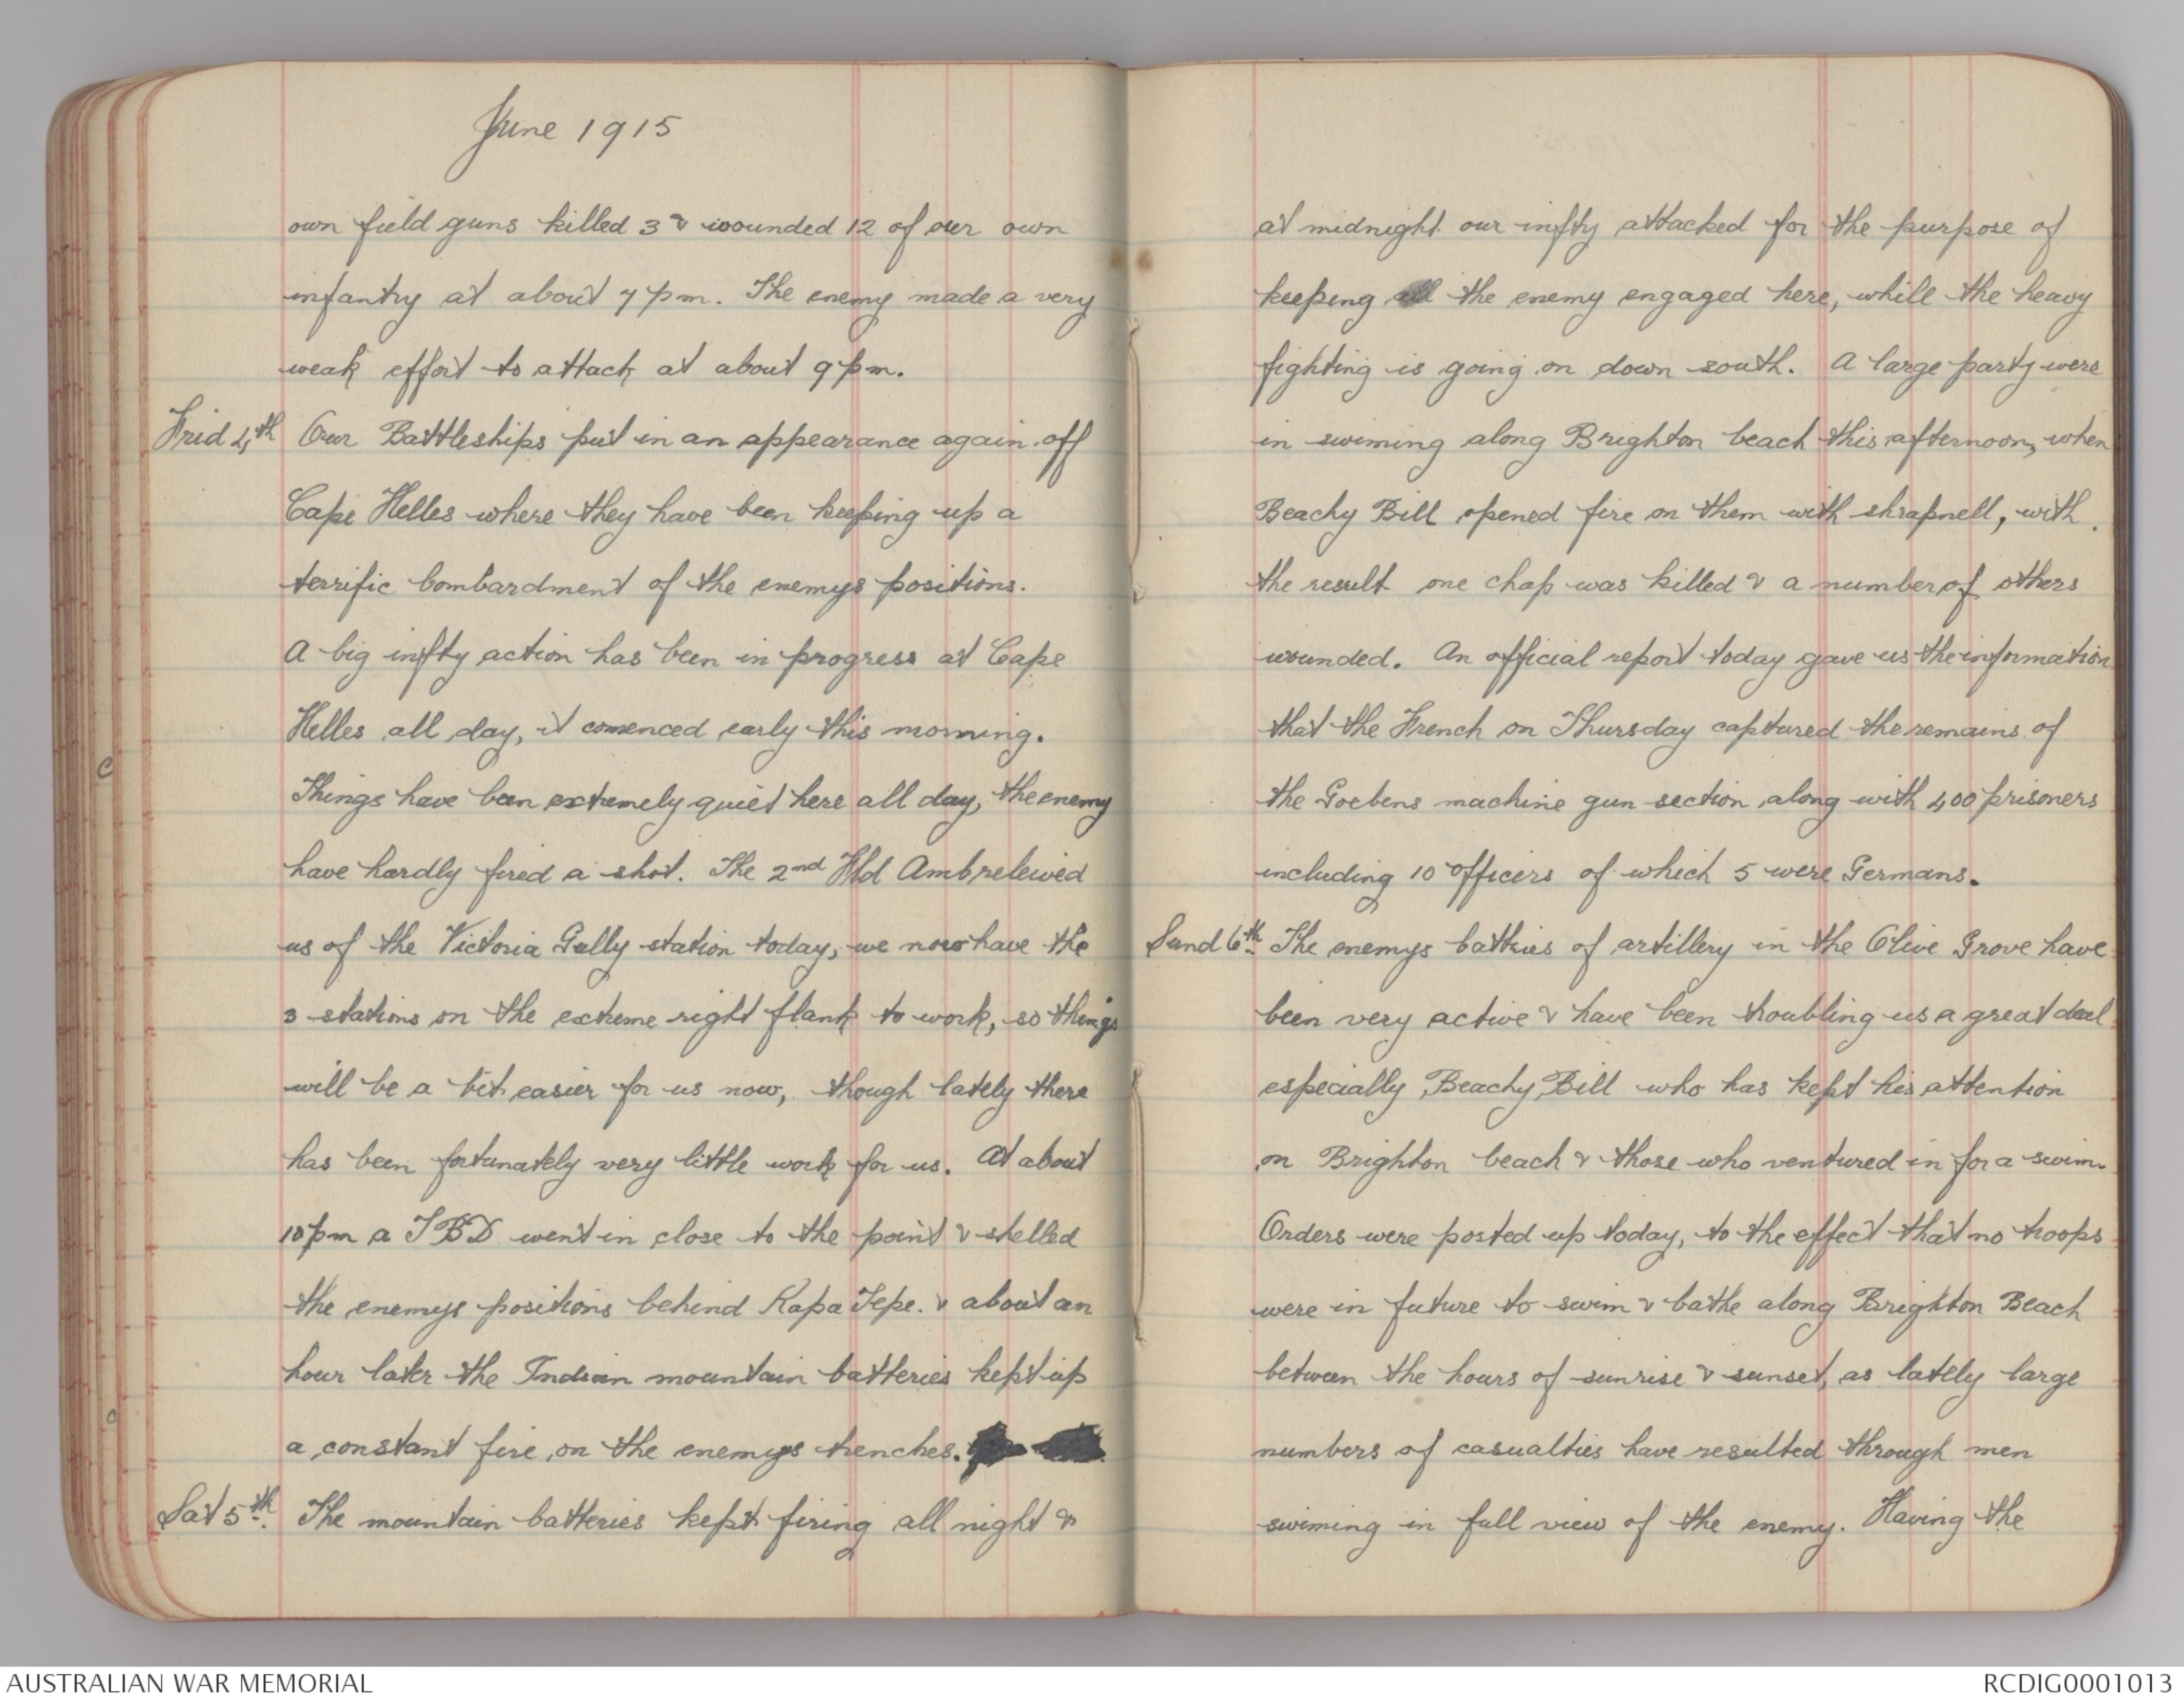 June 1915
own field guns killed 3 & wounded 12 of our own
infantry at about 7 pm. The enemy made a very
weak effort to attack at about 9 pm.
Frid 4th Our Battleships put in an appearance again off
Cape Helles where they have been keeping up a
terrific bombardment of the enemys positions.
A big infty action has been in progress at Cape
Helles all day, it comenced early this morning.
Things have been extremely quiet here all day, the enemy
have hardly fired a shot. The 2nd Fld Amb releived
us of the Victoria Gully station today, we now have the
3 stations on the extreme right flank to work, so things
will be a bit easier for us now, though lately there
has been fortunately very little work for us. At about
10 pm a TBD went in close to the point & shelled
the enemys positions behind Kapa Tepe. & about an
hour later the Indian mountain batteries kept up
a constant fire on the enemys trenches.
Sat 5th. The mountain batteries kept firing all night &
at midnight our infty attacked for the purpose of
keeping all the enemy engaged here, while the heavy
fighting is going on down south. A large party were
in swiming along Brighton beach this afternoon, when
Beachy Bill opened fire on them with shrapnell, with
the result one chap was killed & a number of others
wounded. An official report today gave us the information
that the French on Thursday captured the remains of
the Goebens machine gun section along with 400 prisoners
including 10 officers of which 5 were Germans.
Sund 6th. The enemys battries of artillery in the Olive Grove have
been very active & have been troubling us a great deal
especially Beachy Bill who has kept his attention
on Brighton beach & those who ventured in for a swim.
Orders were posted up today, to the effect that no troops
were in future to swim & bathe along Brighton Beach
between the hours of sunrise & sunset, as lately large
numbers of casualties have resulted through men
swiming in full view of the enemy. Having the
AUSTRALIAN WAR MEMORIAL
RCDIG0001013